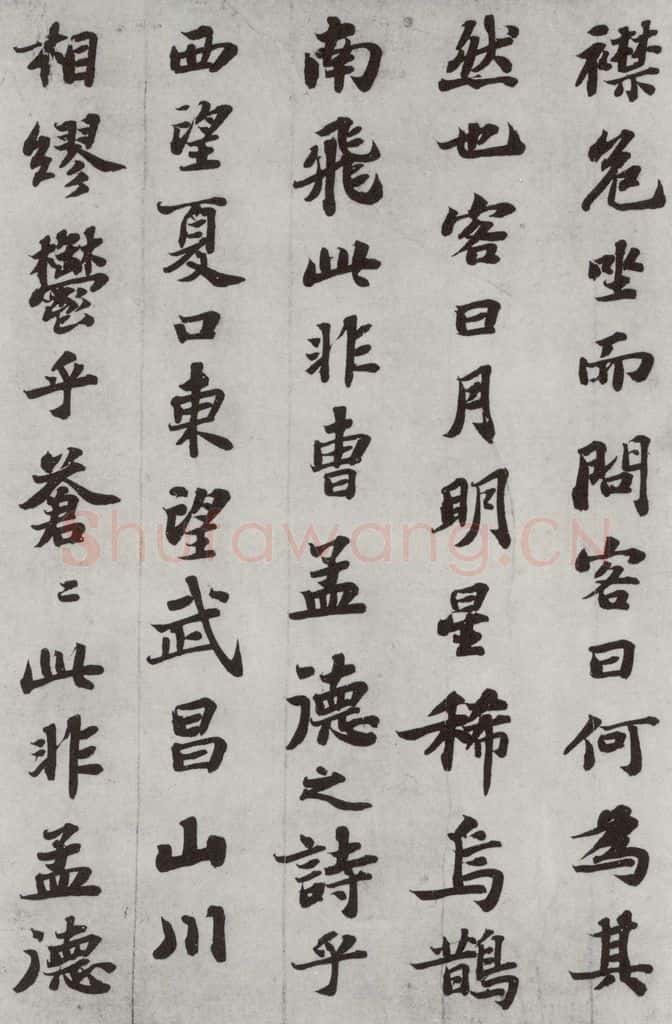 襟危坐而問客曰何為其
然也客曰月明星稀烏鵲
南飛此非曹孟德之詩乎
西望夏口東望武昌山川
相繆鬱乎蒼〻此非孟德
Shufawang.CN